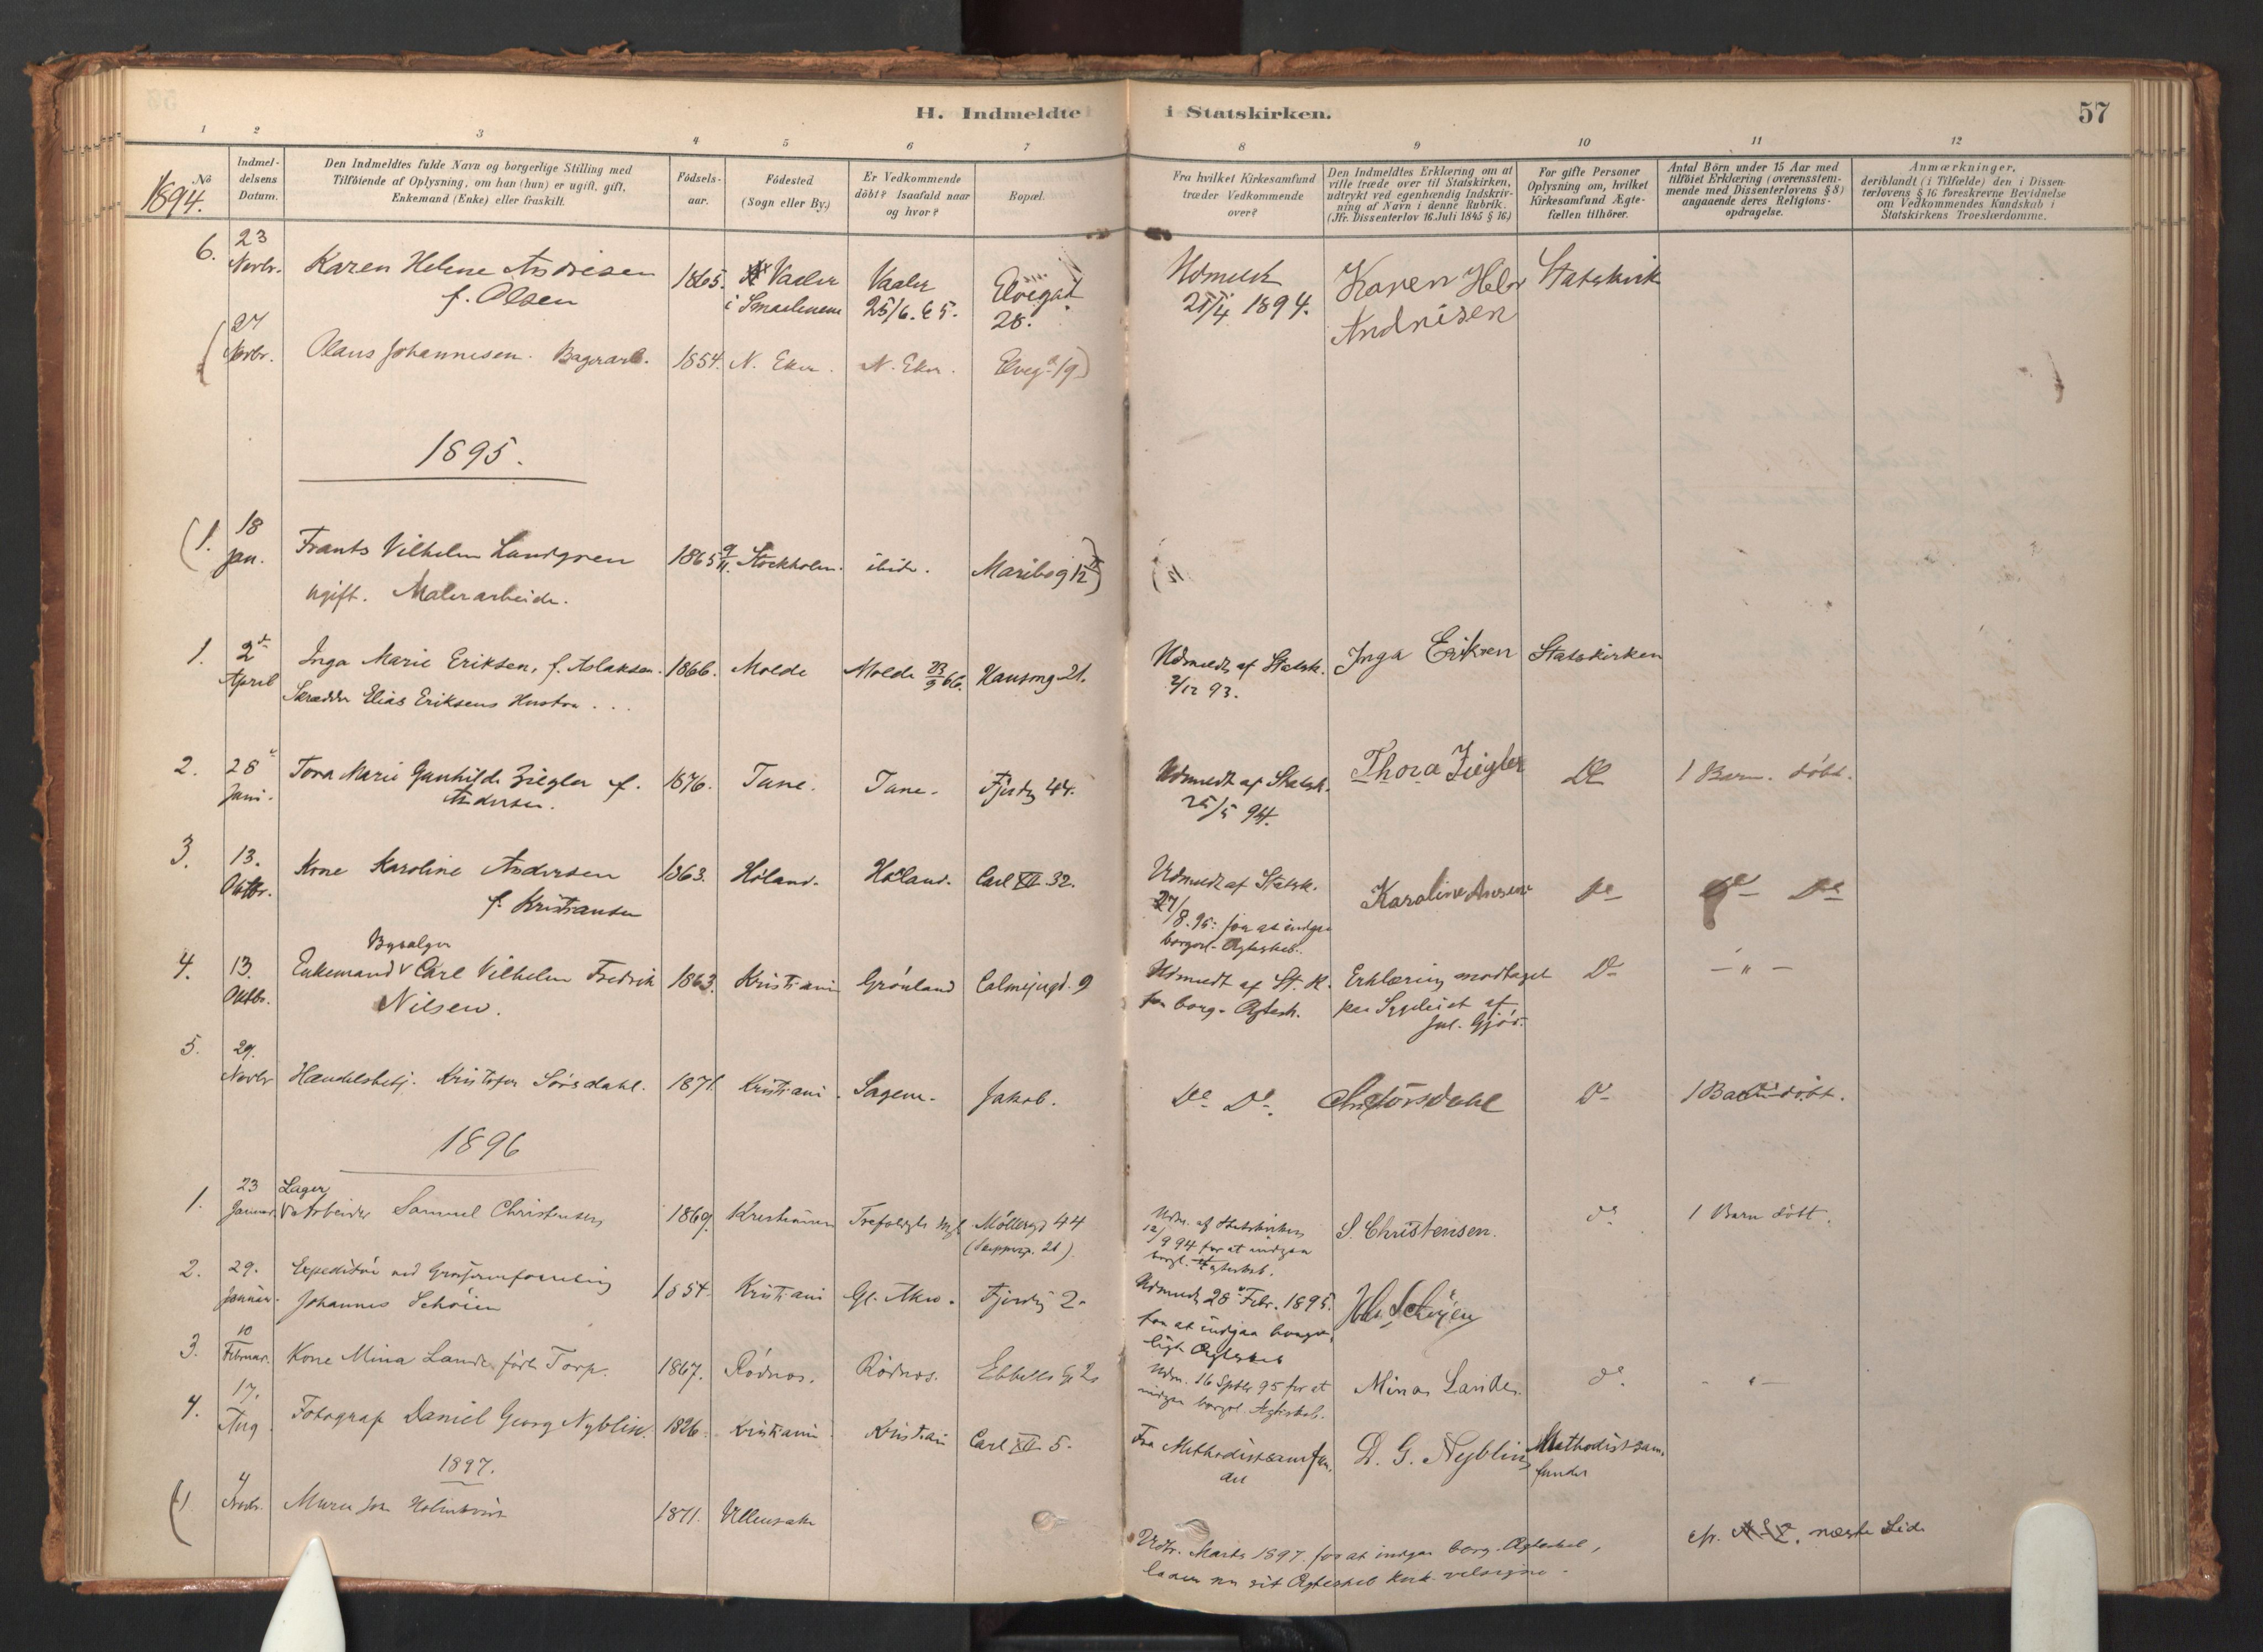 H. Indmeldte i Statskirken.
57
1 2 3 4 5 6 7 8 9 10 11 12
No
1894.
Indmel-
delsens
Datum.
Den Indmeldtes fulde Navn og borgerlige Stilling med
Tilföiende af Oplysning, om han (hun) er ugift, gift,
Enkemand (Enke) eller fraskilt.
Födsels-
aar.
Födested
(Sogn eller By.)
Er Vedkommende
döbt? Isaafald naar
og hvor?
Bopæl.
Fra hvilket Kirkesamfund
træder Vedkommende
over?
Den Indmeldtes Erklæring om at
ville træde over til Statskirken,
udtrykt ved egenhændig Indskriv-
ning af Navn i denne Rubrik.
(Jfr. Dissenterlov 16. Juli 1845 § 16)
For gifte Personer
Oplysning om, hvilket
Kirkesamfund Ægte-
fællen tilhörer.
Antal Börn under 15 Aar med
tilföiet Erklæring (overensstem-
mende med Dissenterlovens § 8)
angaaende deres Religions-
opdragelse.
Anmærkninger,
deriblandt (i Tilfælde) den i Dissen-
terlovens § 16 foreskrevne Bevidnelse
om Vedkommendes Kundskab i
Statskirkens Troeslærdomme.
6. 23 Novbr. Karen Helene Andresen
f. Olsen
1865. Vaaler
i Smaalenene
Vaaler
25/6. 65.
Elvegad
28.
Udmeldt
25/4 1894.
Karen Hele
Andrisen
Statskirk
27 Novbr. Olaus Johannesen. Bagerarb. 1854. N. Eker. N. Eker. Elveg. 19)
1895.
(1. 18 Jan. Frants Vilhelm Lundgren
ugift. Malerarbeide.
1865 9/11. Stockholm. ibid. Maribog 12)
1. 2 April Inga Marie Eriksen, f. Aslaksen.
Skrædder Elias Eriksens Hustru . . .
1866. Molde Molde 66. Hausmg 21.
Udmeldt af Statsk.
2/12 93.
Inga Eriksen Statskirken
2. 28 Juni. Tora Marie Gunhilde Ziegler f.
Andersen.
1876. Tune. Tune. Fjerdg 44.
Udmeldt af Statsk.
25/5 94.
Thora Ziegler Do 1 Barn. döbt.
3. 13. Oktbr. Kone Karoline Andersen
f. Kristiansen
1863. Höland. Höland. Carl XII 32.
Udmeldt af Statsk.
27/8. 95. for at indgaa
borgerl. Ægteskab.
Karoline Do Do Do
4. 13. Oktbr. Bysælger
Enkemand Carl Vilhelm Fredrik
Nilsen.
1863. Kristiania Grönland Calmejergd. 9
Udmeldt af St. K.
for borg. Ægtesk.
Erklæring modtaget
paa Sygeleiet af
Jul. Gjör.
Do — " —
5. 29. Novbr Handelsbetj. Kristofer Sörsdahl. 1871. Kristiani. Sagene. Jakob. Do Do. Chr Sörsdahl Do 1 Barn döbt.
1896
1. 23 Januar. Lager
Arbeider Samuel Christensen
1869. Kristiania Trefoldigh Möllergd 44
Udm. af Statskirken
12/9 94 for at indgaa
borgl. Ægteskab.
S. Christensen. do 1 Barn döbt.
2. 29. Januar. Expeditör ved
Johannes Schöien
1854. Kristiani Gl. Aker. Fjerdg 2.
Udmeldt 28 Febr. 1895.
for at indgaa borger-
ligt Ægteskab
3. 10 Februar. Kone Mina Lande födt Torp. 1867. Rödnes. Rödnes.
Udm. 16 Sptbr 95 for at
indgaa borgerl. Ægteskab.
Mina Lande. do. - " -
4. 17. Aug. Fotograf Daniel Georg Nyblin. 1826. Kristiania Kristiani Carl XII 5.
Fra Methodistsamfun-
det
D. G. Nyblin Methodistsam-
fundet
1897.
(1. 4 Novbr. 1871. Ullensaker
Udtr. Marts 1897. for at indgaa borg. Ægteskab,
lader nu sit Ægteskab kirk. velsigne.
cfr. næste Side